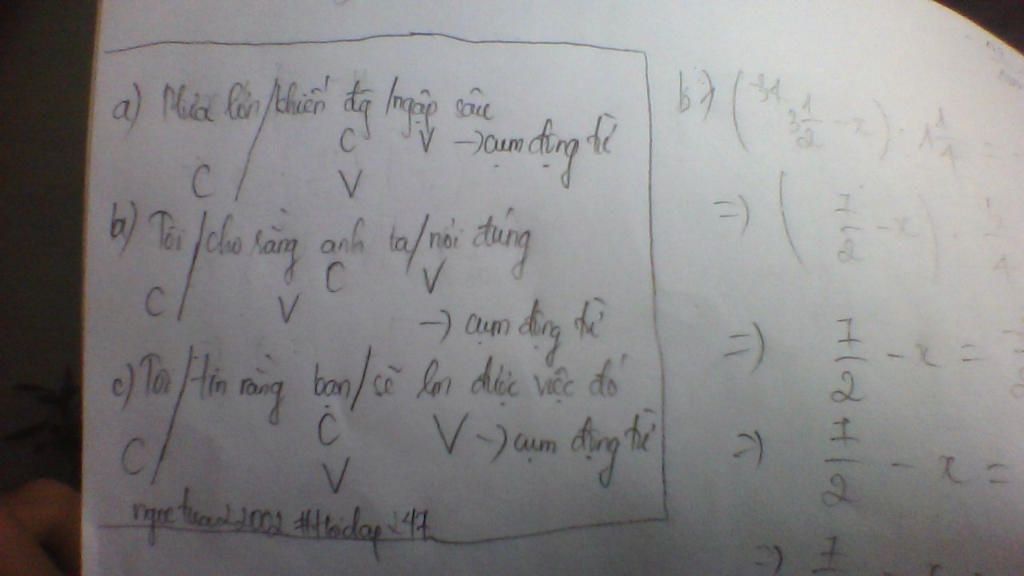 a) Mưa lớn / khiến đg / ngập sâu
C V → cụm động từ
C / V
b) Tôi / cho rằng anh ta / nói đúng
C V
C / V
→ cụm động từ
c) Tôi / tin rằng bạn / sẽ lm được việc đó
C V → cụm động từ
C / V
#Hoidap247
b) ( 3 1/2 - x ) . 1 1/4 =
=> ( 7/2 - x ) .
=> 7/2 - x =
=> 7/2 - x =
=> 7